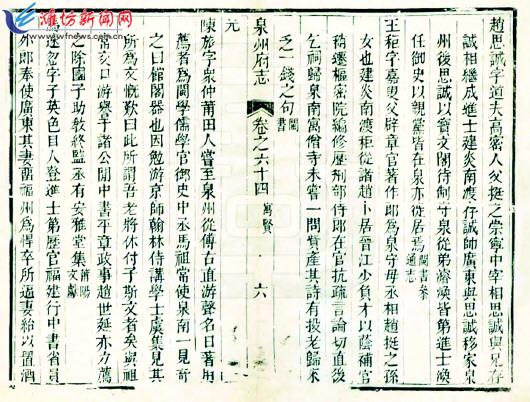 潍坊新闻网
趙思誠字道夫高密人父挺之崇寧中宰相思誠與兄存
誠相繼成進士建炎南渡存誠帥廣東與思誠移家泉
州後思誠以寶文閣待制守泉從弟濬渙皆第進士渙
任御史以親黨皆在泉亦徙居焉閩書叅通志
王秬字嘉叟父辟章官著作郎爲泉守母丞相趙挺之孫
女也建炎南渡秬從諸趙卜居晋江少負才以蔭補官
稍遷樞密院編修歷刑部侍郎在官抗疏言論切直後
乞祠歸泉南寓僧寺未嘗一問貲產其詩有投老歸來
乏一錢之句閩書
泉州府志 卷之六十四 寓賢 六
元
陳旅字衆仲莆田人嘗至泉州從傅古直游聲名日著用
薦者爲閩學儒學官御史中丞馬祖常使泉南一見奇
之曰館閣器也因勉游京師翰林侍講學士虞集見其
所爲文慨歎曰此所謂吾老將休付子斯文者矣與祖
常交口游譽于諸公間中書平章政事趙世延亦力薦
之除國子助教終監丞有安雅堂集莆陽文獻
忽字子英色目人登進士第歷官福建行中書省員
外郎奉使廣東其妻留福州爲悍卒所逼妻紿以置酒